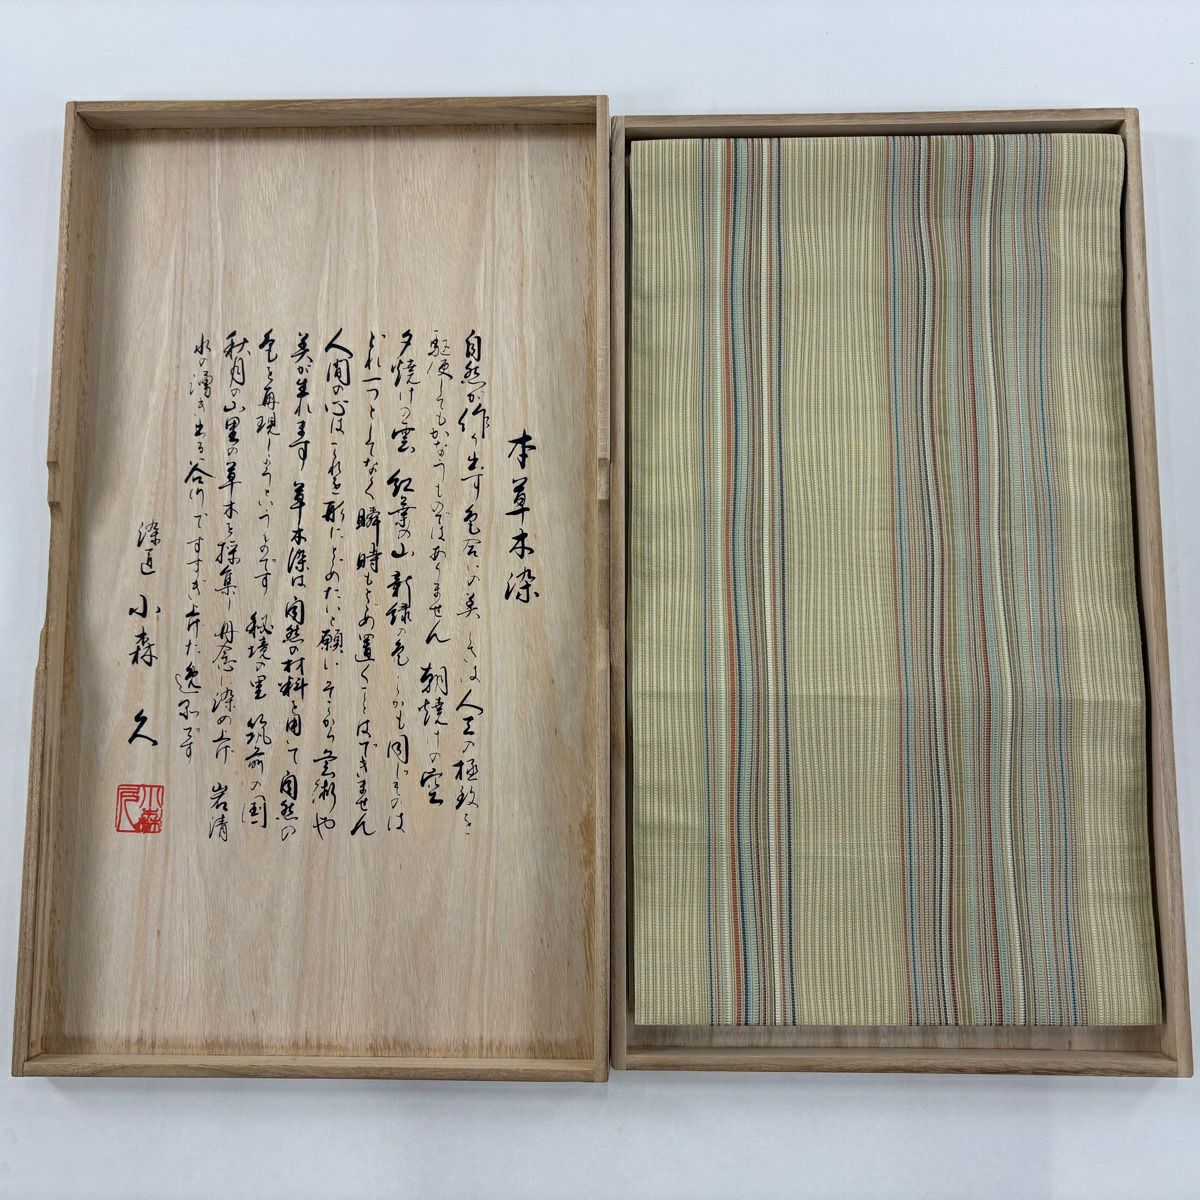 本草木染
自然が作り出す色合いの美しさは人工の極致を
駆使してもかなうものではありません 朝焼けの空
夕焼けの雲 紅葉の山 新緑の色しかも同じものは
どれ一つとしてなく瞬時もとどめ置くことはできません
人間の心はこれを形にとどめたいと願い そこから芸術や
美が生れます 草木染は自然の材料を用いて自然の
色を再現しようというものです 秘境の里 筑前の国
秋月の山里の草木を採集し丹念に染め上げ 岩清
水の湧き出る谷川ですすぎ上げた逸品です
染道 小森 久
小森久